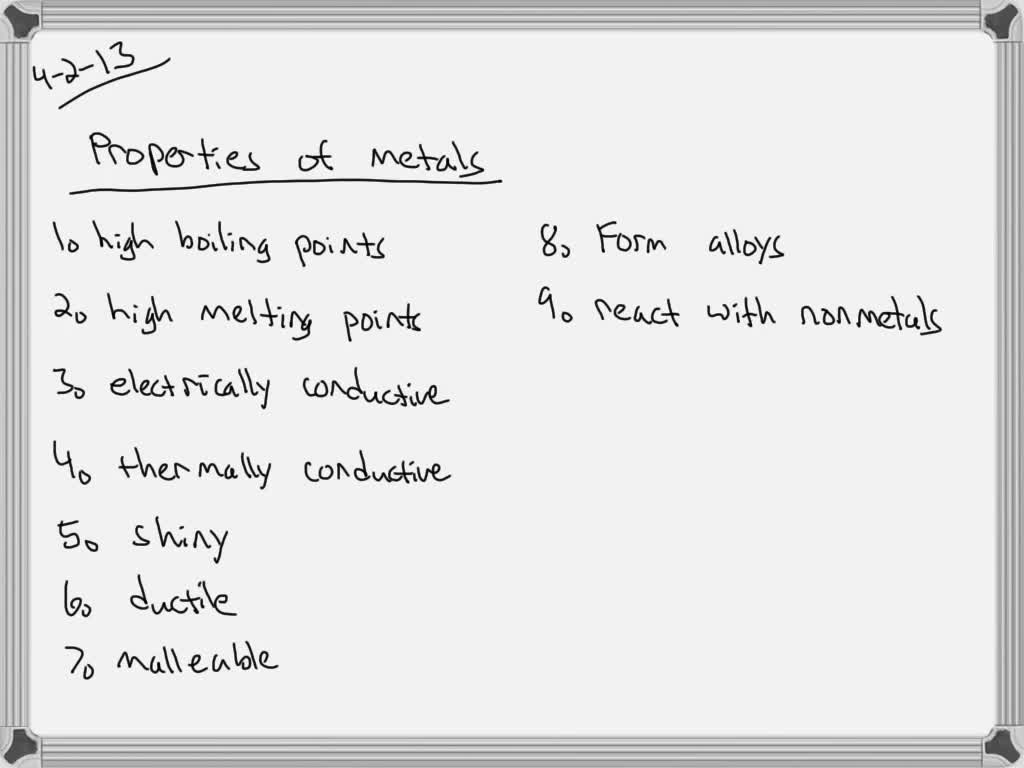 4-2-13
Properties of metals
1. high boiling points
2. high melting points
3. electrically conductive
4. thermally conductive
5. shiny
6. ductile
7. malleable
8. Form alloys
9. react with nonmetals